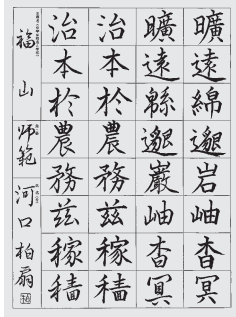 曠遠綿邈岩岫杳冥
曠遠緜邈巖岫杳冥
治本於農務茲稼穡
治本於農務茲稼穡
福山 师範 河口柏扇